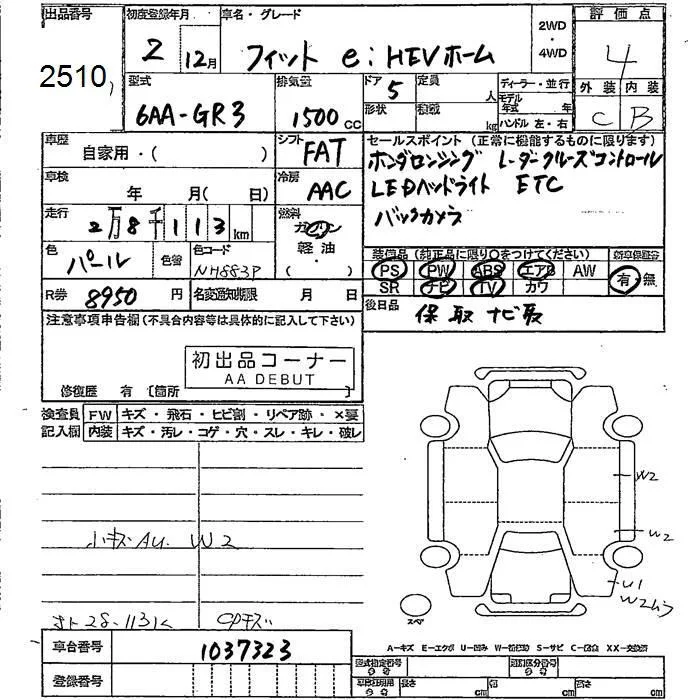 出品番号 初度登録年月 車名・グレード 2WD・4WD 評価点
2510 2 12月 フィット e:HEVホーム 4
型式 排気量 ドア 定員 人 ディーラー・並行 外装 内装
6AA-GR3 1500cc 5 形状 積載 kg モデル年式 年 ハンドル 左・右 C B
車歴 シフト セールスポイント (正常に機能するものに限ります)
自家用・( ) FAT ホンダセンシング レーダークルーズコントロール
車検 年 月( 日) 冷房 AAC LEDヘッドライト ETC
走行 2万8千113km 燃料 ガソリン・軽油・( ) バックカメラ
色 パール 色替 色コード NH883P 装備品 (純正品に限り○をつけてください) 新車保証書
PS PW ABS エアB AW 有・無
R券 8950円 名変通知期限 月 日 SR ナビ TV カワ
注意事項申告欄(不具合内容等は具体的に記入して下さい) 後日品 保 取 ナビ取
初出品コーナー
AA DEBUT
修復歴 有 〔箇所 〕
検査員記入欄 FW キズ・飛石・ヒビ割・リペア跡・×要
内装 キズ・汚レ・コゲ・穴・スレ・キレ・破レ
W2
小キズAU W2
W2
U1
W2ムラ
28.113k
スペア
車台番号 1037323 A-キズ E-エクボ U-凹み W-S-サビ C-腐食 XX-交換済
登録番号 型式指定番号 類別区分番号
長さ cm 幅 cm 高さ cm